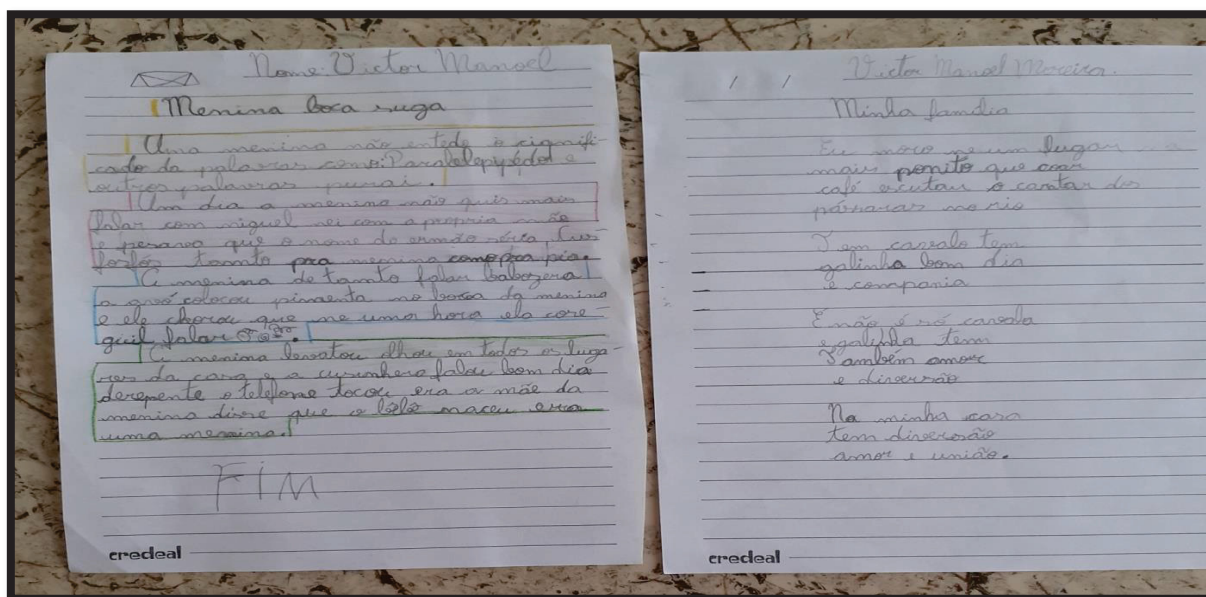 Nome: Victor Manoel
Menina boca suga
Uma menina não entede o signifi-
cado da palavras como: Paralelepipédol e
outros palavras
Um dia a menina não quis mais
falar com niguel nei com a propria mãe
e pesanvo que o nome do ermão séria,
tamto pra menina como pra
A menina de tamto falar babozera
a avó colocou pimenta no boca da menina
e ele chorou que ne uma hora ela core
guil falar
A menina levatou olhou em todos os luga-
res da casa e a cusinhera falou bom dia
derepente o telefone tocou era a mãe da
menina disse que o bebê naceu erra
uma menina.
FIM
credeal
/ /
Victor Manoel Moreira.
Minha família
Eu moro neum lugar
mais ponito que
café escutau o cantar dos
pássaras no rio
Tem cavalo tem
galinha bom dia
e compania
E não é só cavalo
e galinha tem
Também amor
e diversão
Na minha casa
tem diversão
amor e união.
credeal